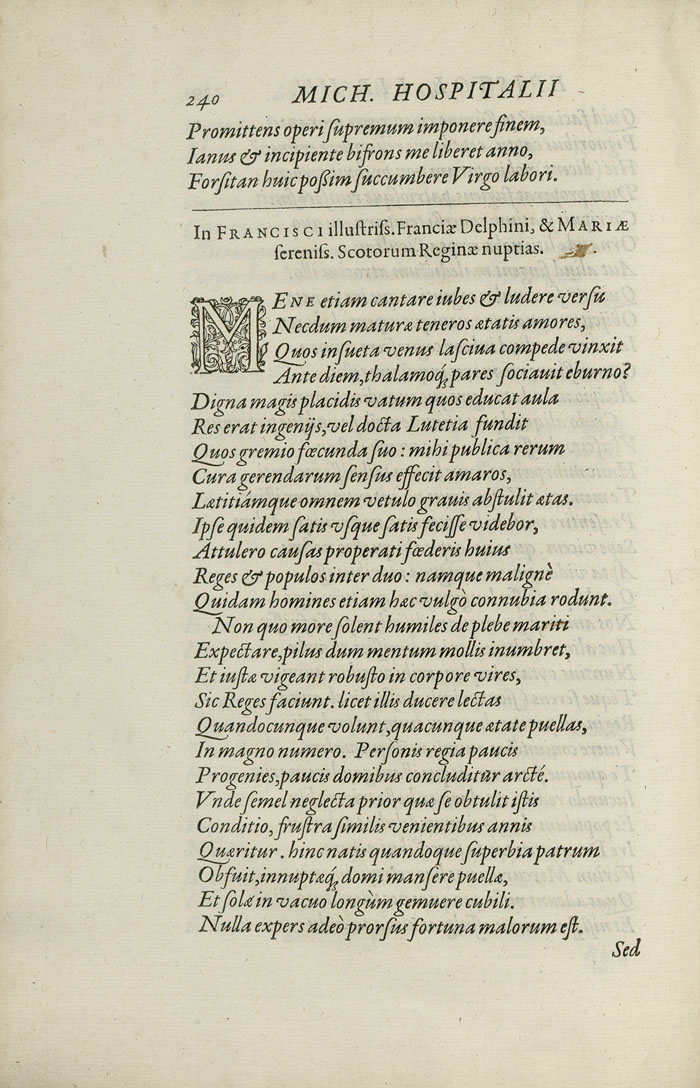 240 MICH. HOSPITALII
Promittens operi ſupremum imponere finem,
Ianus & incipiente bifrons me liberet anno,
Forſitan huic poßim ſuccumbere Virgo labori.
In FRANCISCI illuſtriſs. Franciæ Delphini, & MARIÆ
ſereniſs. Scotorum Reginæ nuptias.
MENE etiam cantare iubes & ludere verſu
Necdum maturæ teneros ætatis amores,
Quos inſueta venus laſciua compede vinxit
Ante diem, thalamoq́; pares ſociauit eburno?
Digna magis placidis vatum quos educat aula
Res erat ingenijs, vel docta Lutetia fundit
Quos gremio fœcunda ſuo : mihi publica rerum
Cura gerendarum ſenſus effecit amaros,
Lætitiámque omnem vetulo grauis abſtulit ætas.
Ipſe quidem ſatis vſque ſatis feciſſe videbor,
Attulero cauſas properati fœderis huius
Reges & populos inter duo : namque malignè
Quidam homines etiam hæc vulgò connubia rodunt.
Non quo more ſolent humiles de plebe mariti
Expectare, pilus dum mentum mollis inumbret,
Et iuſtæ vigeant robuſto in corpore vires,
Sic Reges faciunt. licet illis ducere lectas
Quandocunque volunt, quacunque ætate puellas,
In magno numero. Perſonis regia paucis
Progenies, paucis domibus concluditur arcté.
Vnde ſemel neglecta prior quæ ſe obtulit iſtis
Conditio, fruſtra ſimilis venientibus annis
Quæritur. hinc natis quandoque ſuperbia patrum
Obfuit, innuptæq́; domi manſere puellæ,
Et ſolæ in vacuo longùm gemuere cubili.
Nulla expers adeò prorſus fortuna malorum eſt.
Sed